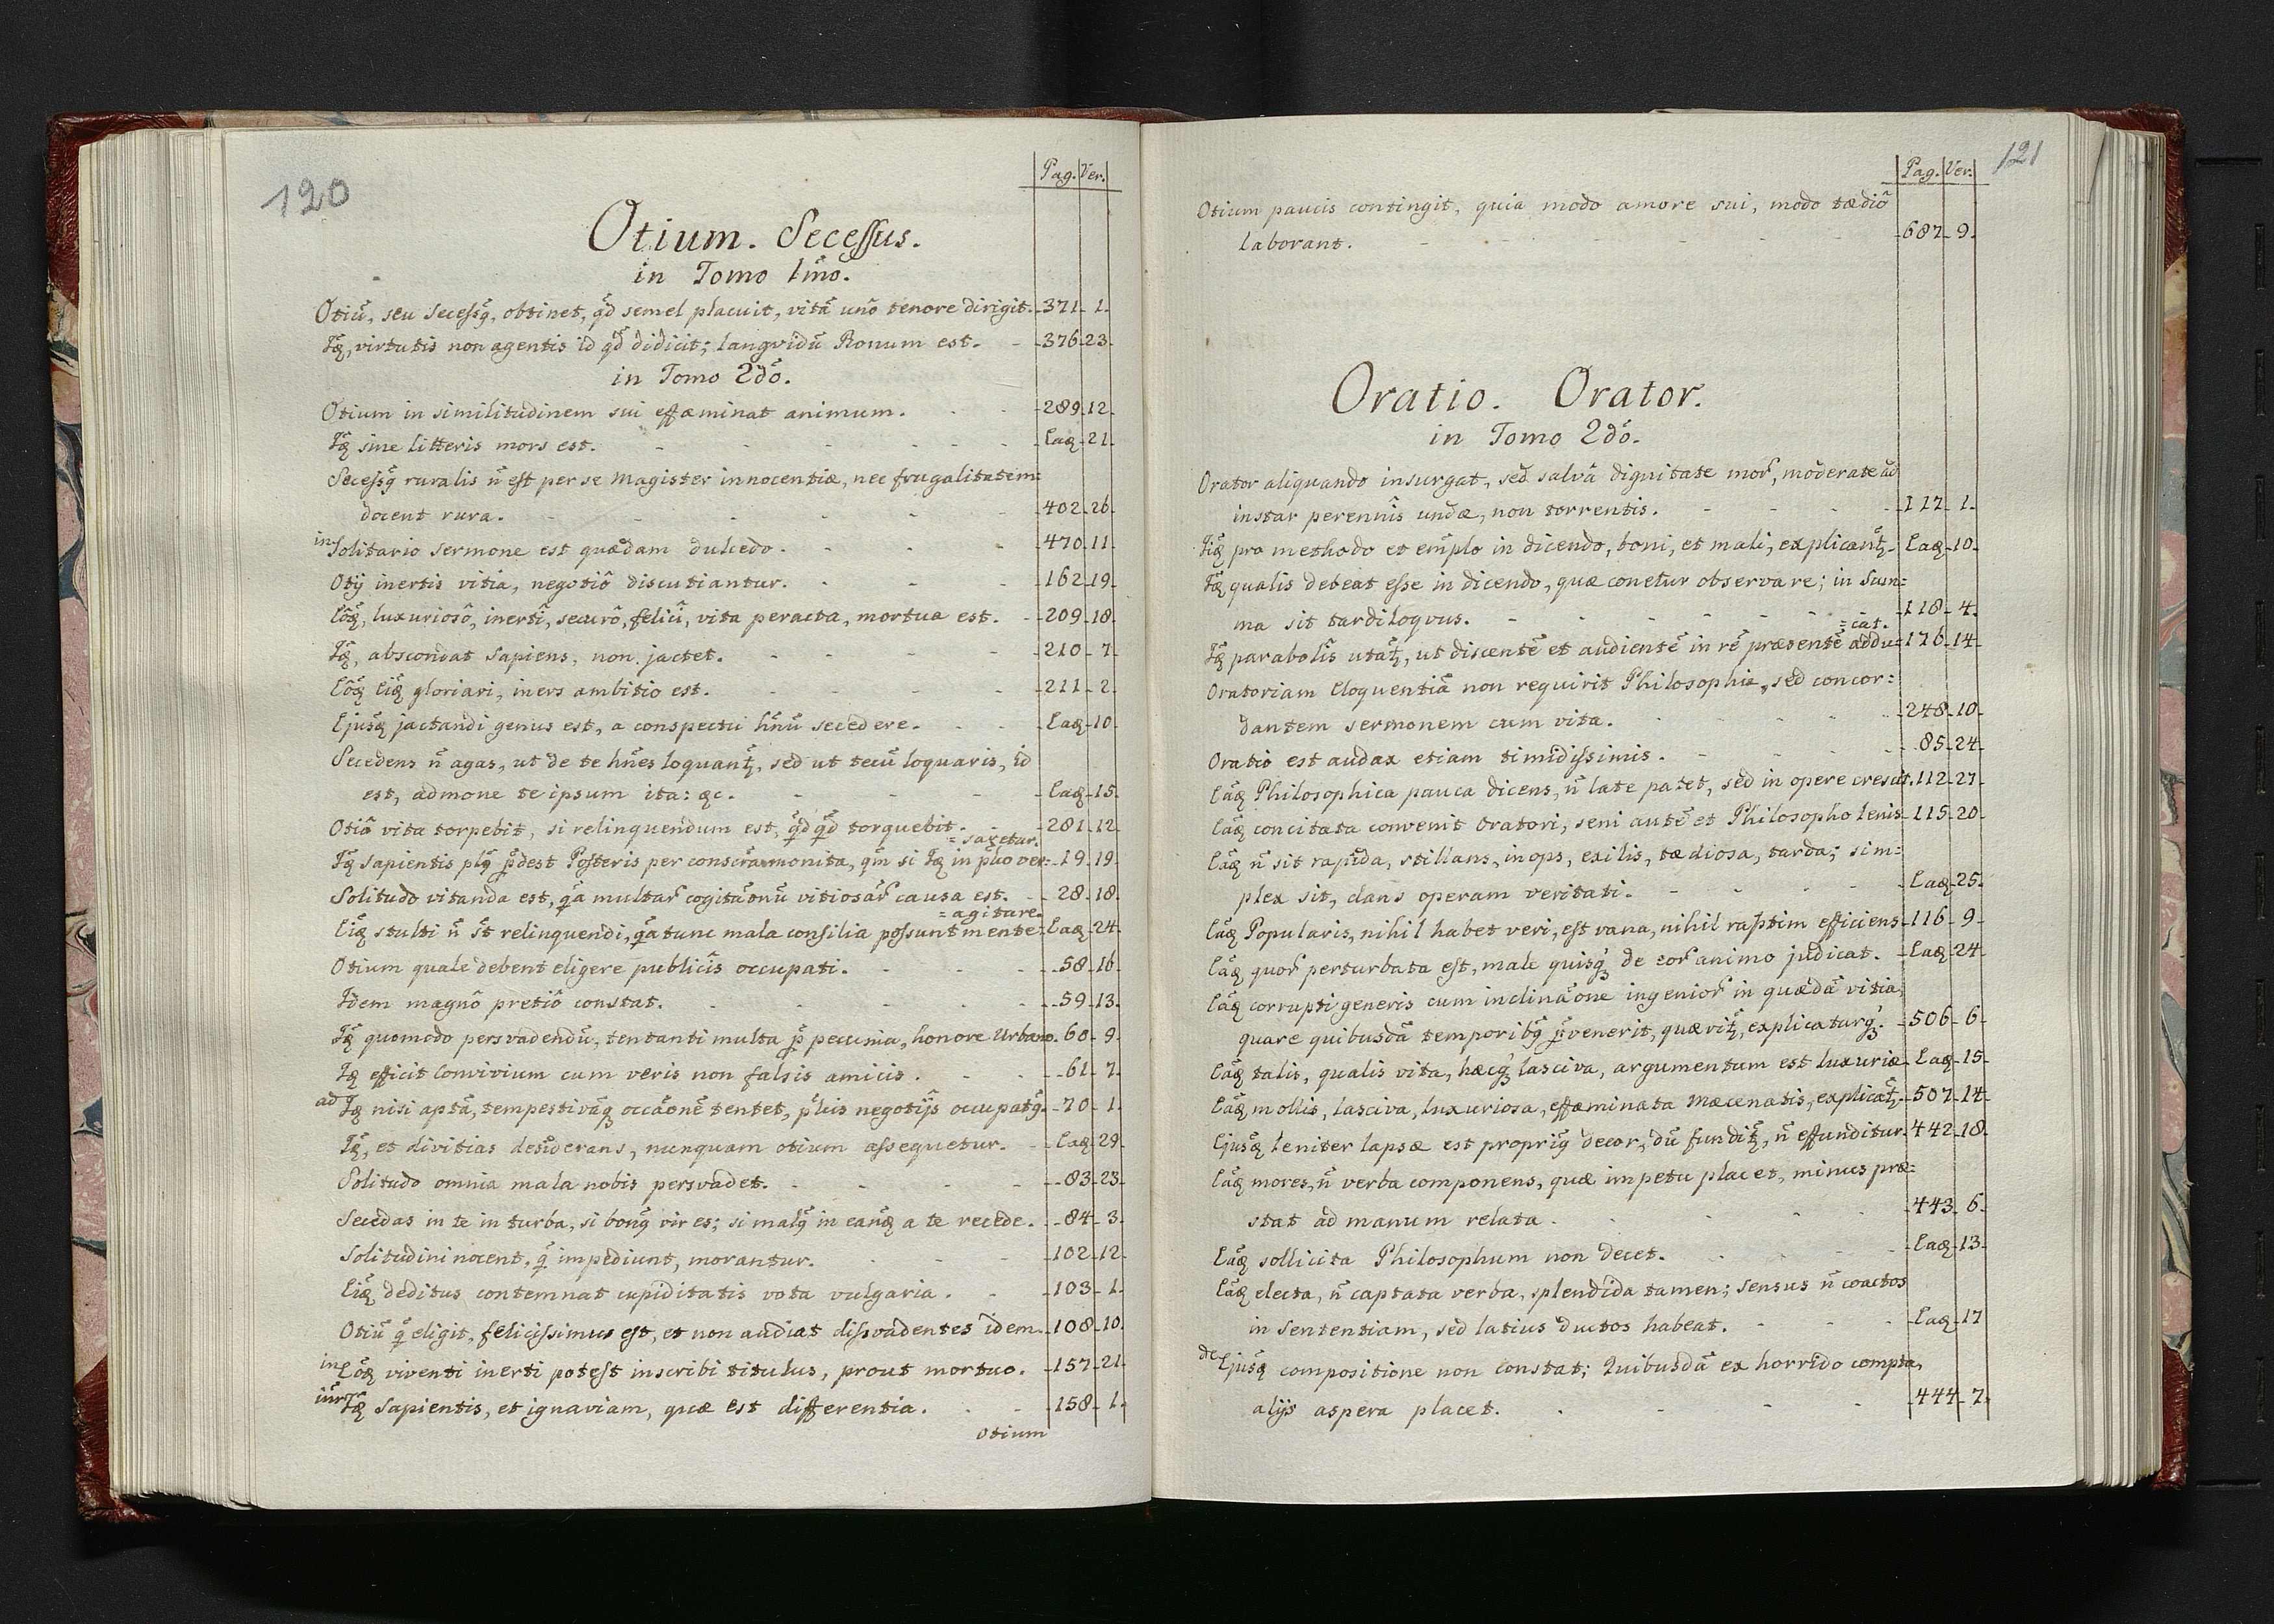 120
Pag. Ver.
Otium. Secessus.
in Tomo 1mo.
Otiū, seu Secessq̄, obtinet, q̄d semel placuit, vitā unô tenore dirigit. 371. 1.
Iq̄, virtutis non agentis id q̄d didicit; langvidū Bonum est. 376. 23.
in Tomo 2dô.
Otium in similitudinem sui effæminat animum. 289. 12.
Iq̄ sine litteris mors est. Eaq 21.
Secessq̄ ruralis n̄ est per se Magister innocentiæ, nec frugalitatem
docent rura. 402. 26.
in Solitario sermone est quædam dulcedo. 470. 11.
Otij inertis vitia, negotiô discutiantur. 162. 19.
Eôq̄, luxuriosô, inertî, securô, felicî, vita peracta, mortua est. 209. 18.
Iq̄, abscondat Sapiens, non jactet. 210. 7.
Eôq̄ Eiq̄ gloriari, iners ambitio est. 211. 2.
Ejusq̄ jactandi genus est, a conspectu hn̄ū secedere. Eaq 10.
Secedens n̄ agas, ut de te hn̄es loquantꝶ, sed ut tecū loquaris, id
est, admone te ipsum ita: &c. Eaq 15.
Otiô vita torpebit, si relinquendum est, q̄dq̄d torquebit. 281. 12.
=saxetur.
Iq̄ Sapientis plq̄ p̄dest Posteris per conscrā monita, qm̄ si Iq̄ in p̄lio ver= 19. 19.
Solitudo vitanda est, q̄a multar̄ cogitāonū vitiosar̄ causa est. 28. 18.
=agitare.
Eiq̄ stulti n̄ st̄ relinquendi, q̄a tunc mala consilia possunt mente= Eaq 24.
Otium quale debent eligere publicîs occupati. 58. 16.
Idem magnô pretiô constat. 59. 13.
Iq̄ quomodo persvadendū, tentanti multa p̄ pecunia, honore Urbano. 60. 9.
Iq̄ efficit Convivium cum veris non falsis amicis. 61. 7.
ad Iq̄ nisi aptā, tempestivāq̄ occāonē tentet, p̄lus negotijs occupatq̄. 70. 1.
Iq̄, et divitias desiderans, nunquam otium assequetur. Eaq 29.
Solitudo omnia mala nobis persvadet. 83. 23.
Secedas in te in turba, si bonq̄ vir es; si malq̄ in eanq̄ a te recede. 84. 3.
Solitudini nocent, q̄ impediunt, morantur. 102. 12.
Eiq̄ deditus contemnat cupiditatis vota vulgaria. 103. 1.
Otiū q̄ eligit, felicissimus est, et non audiat dissvadentes idem. 108. 10.
in Eôq̄ viventi inerti potest inscribi titulus, prout mortuo. 157. 21.
Iq̄ Sapientis, et ignaviam, quæ est differentia. 158. 1.
Otium
121
Pag. Ver.
Otium paucis contingit, quia modo amore sui, modo tædiô
laborant. 687. 9.
Oratio. Orator.
in Tomo 2dô.
Orator aliquando insurgat, sed salvâ dignitate mor̄, moderate ad
instar perennîs undæ, non torrentis. 117. 1.
Iiq̄ pro methodo et emp̄lo in dicendo, boni, et mali, explicantꝶ. Eaq 10.
Iq̄ qualis debeat esse in dicendo, quæ conetur observare; in sum=
ma sit tardiloqvus. 118. 4.
=cat.
Iq̄ parabolîs utatꝶ, ut discentē et audientē in rē præsentē addu= 176. 14.
Oratoriam Eloquentiā non requirit Philosophia, sed concor=
dantem sermonem cum vita. 248. 10.
Oratio est audax etiam timidissimis. 85. 24.
Eāq̄ Philosophica pauca dicens, n̄ late patet, sed in opere crescit. 112. 27.
Eāq̄ concitata convenit Oratori, seni autē et Philosopho lenis 115. 20.
Eāq̄ n̄ sit rapida, stillans, inops, exilis, tædiosa, tarda; sim=
plex sit, dans operam veritati. Eaq 25.
Eāq̄ Popularis, nihil habet veri, est vana, nihil raptim efficiens 116. 9.
Eāq̄ quor̄ perturbata est, male quisq̄ de eor̄ animo judicat. Eaq 24.
Eāq̄ corrupti generis cum inclināone ingenior̄ in quædā vitia,
quare quibusdā temporibq̄ p̄venerit, quæ vitꝶ, explicaturq̄. 506. 6.
Eāq̄ talis, qualis vita, hæcq̄ lasciva, argumentum est luxuriæ. Eaq 15.
Eāq̄ mollis, lasciva, luxuriosa, effæminata Mæcenatis, explicatꝶ. 507. 14.
Ejusq̄ leniter lapsæ est propriq̄ decor, dū funditꝶ, n̄ effunditur. 442. 18.
Eāq̄ mores, n̄ verba componens, quæ impetu placet, minus præ=
stat ad manum relata. 443. 6.
Eāq̄ sollicita Philosophum non decet. Eaq 13.
Eāq̄ electa, n̄ captata verba, splendida tamen; sensus n̄ coactos
in Sententiam, sed latius ductos habeat. Eaq 17
de Ejusq̄ compositione non constat; Quibusdā ex horrido compta,
alijs aspera placet. 444. 7.